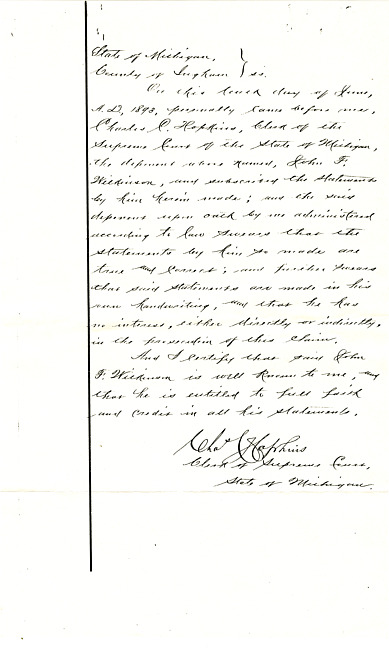 State of Michigan,
County of Ingham } ss.
On this tenth day of June,
A.D., 1893, personally came before me,
Charles C. Hopkins, Clerk of the
Supreme Court of the State of Michigan,
the deponent above named, John F.
Wilkinson, and subscribed the statements
by him herein made; and the said
deponent upon oath by me administered
according to law swears that the
statements by him so made are
true and correct; and further swears
that said statements are made in his
own handwriting, and that he has
no interest, either directly or indirectly,
in the prosecution of this claim.
And I certify that said John
F. Wilkinson is well known to me, and
that he is entitled to full faith
and credit in all his statements.
Chas C Hopkins
Clerk of Supreme Court,
State of Michigan.